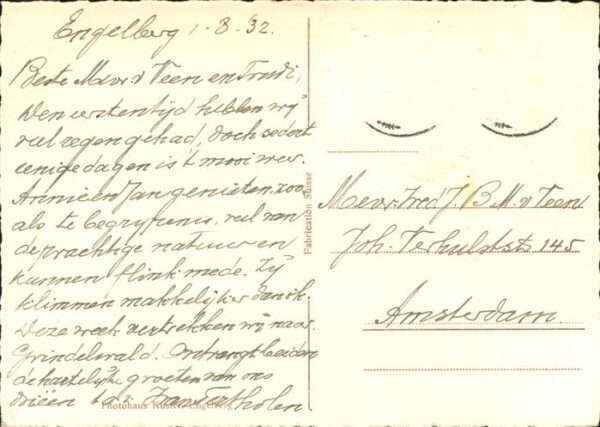 Engelberg 1-8-32.
Beste Mevr v Teen en Trudi,
Den eersten tijd hebben wij
veel regen gehad, doch sedert
eenige dagen is 't mooi weer.
Annie en Jan genieten, zoo
als te begrypen is, veel van
de prachtige natuur en
kunnen flink mede. Zy
klimmen makkelijker dan ik.
Deze week vertrekken wij naar
Grindelwald. Ontvangt beiden
de hartelijke groeten van ons
drieën
Tholen
Photohaus
Engelberg
Fabrication Suisse
Mevr. Fred J. B. M. v Teen
Joh. Terhulststr 145
Amsterdam.